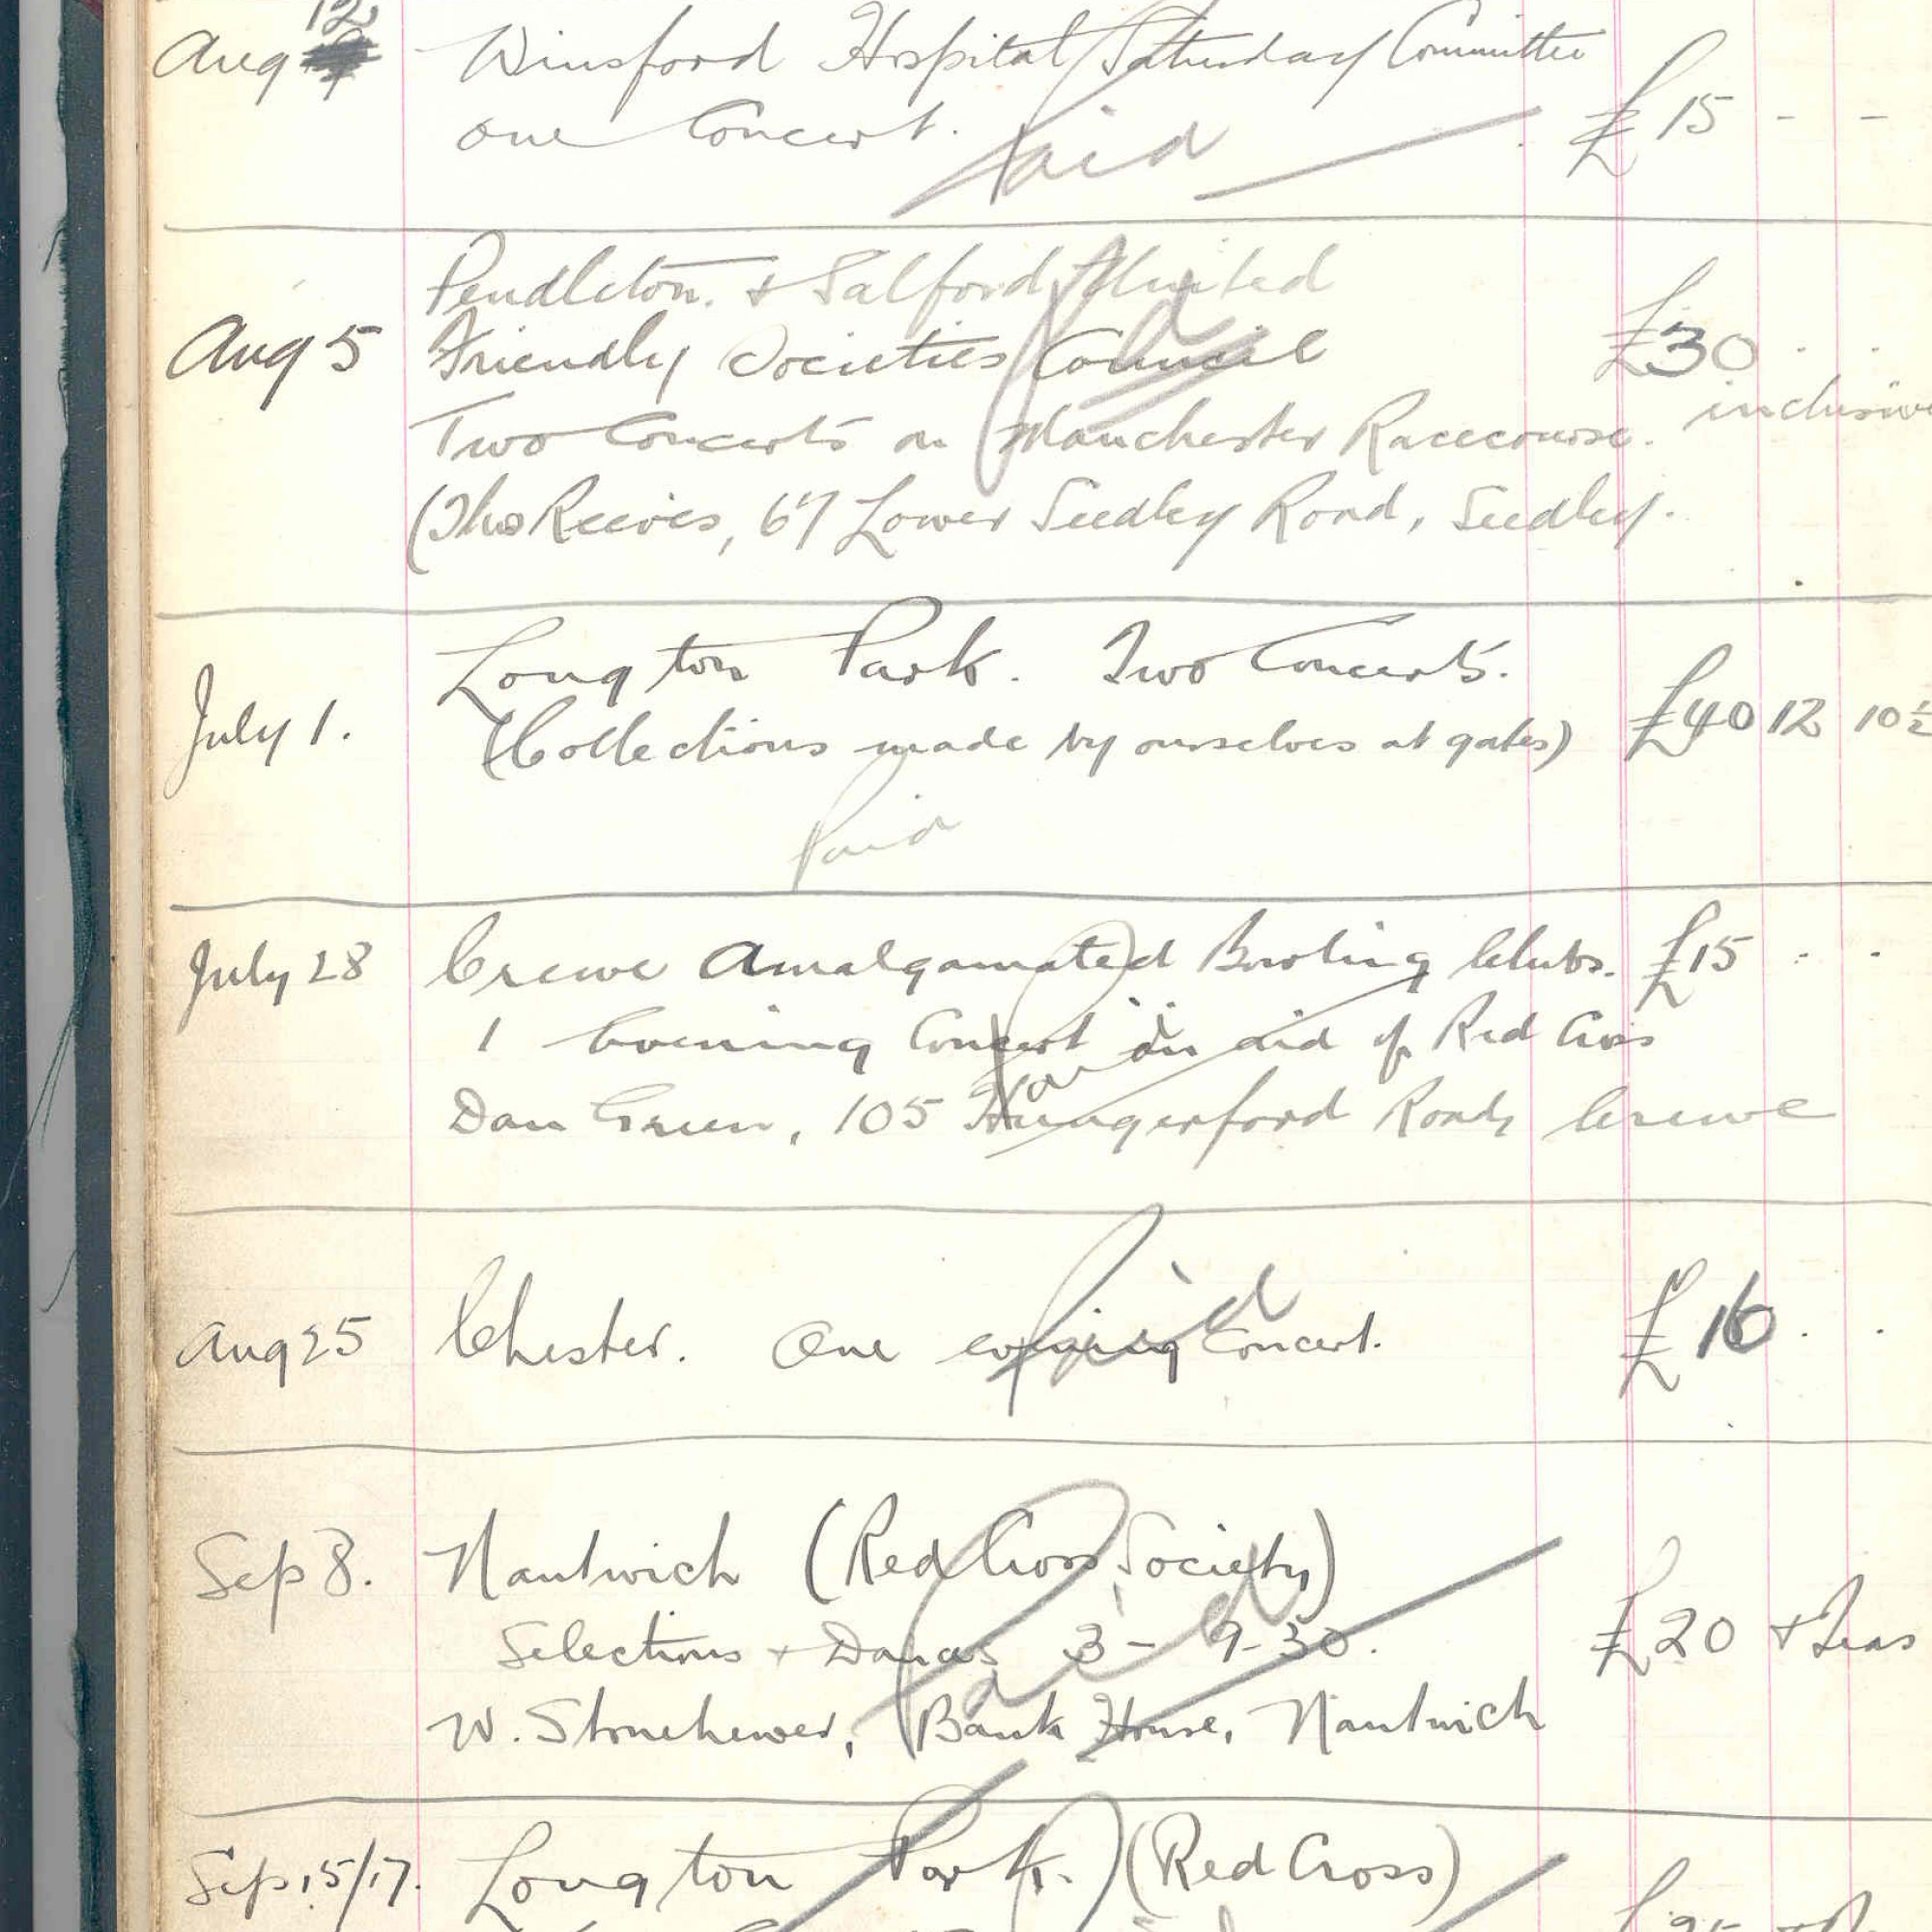 Aug 12 Winsford Hospital Saturday Committee
one Concert. £15 - -
Paid
Pendleton & Salford United
Aug 5 Friendly Societies Council £30 . .
Two Concerts on Manchester Racecourse. inclusive
(Thos Reeves, 67 Lower Seedley Road, Seedley.
Paid
Longton Park. Two Concerts.
July 1. (Collections made by ourselves at gates) £40 12 10½
Paid
July 28 Crewe Amalgamated Bowling Clubs. £15 . .
1 Evening Concert in aid of Red Cross
Dan Green, 105 Hungerford Road, Crewe
Paid
Aug 25 Chester. One evening Concert. £16 . .
Paid
Sep 8. Nantwich (Red Cross Society)
Selections + Dances 3 - 9-30. £20 + Teas
W. Stonehewer, Bank House, Nantwich
Paid
Sep 15/17. Longton Park. (Red Cross)